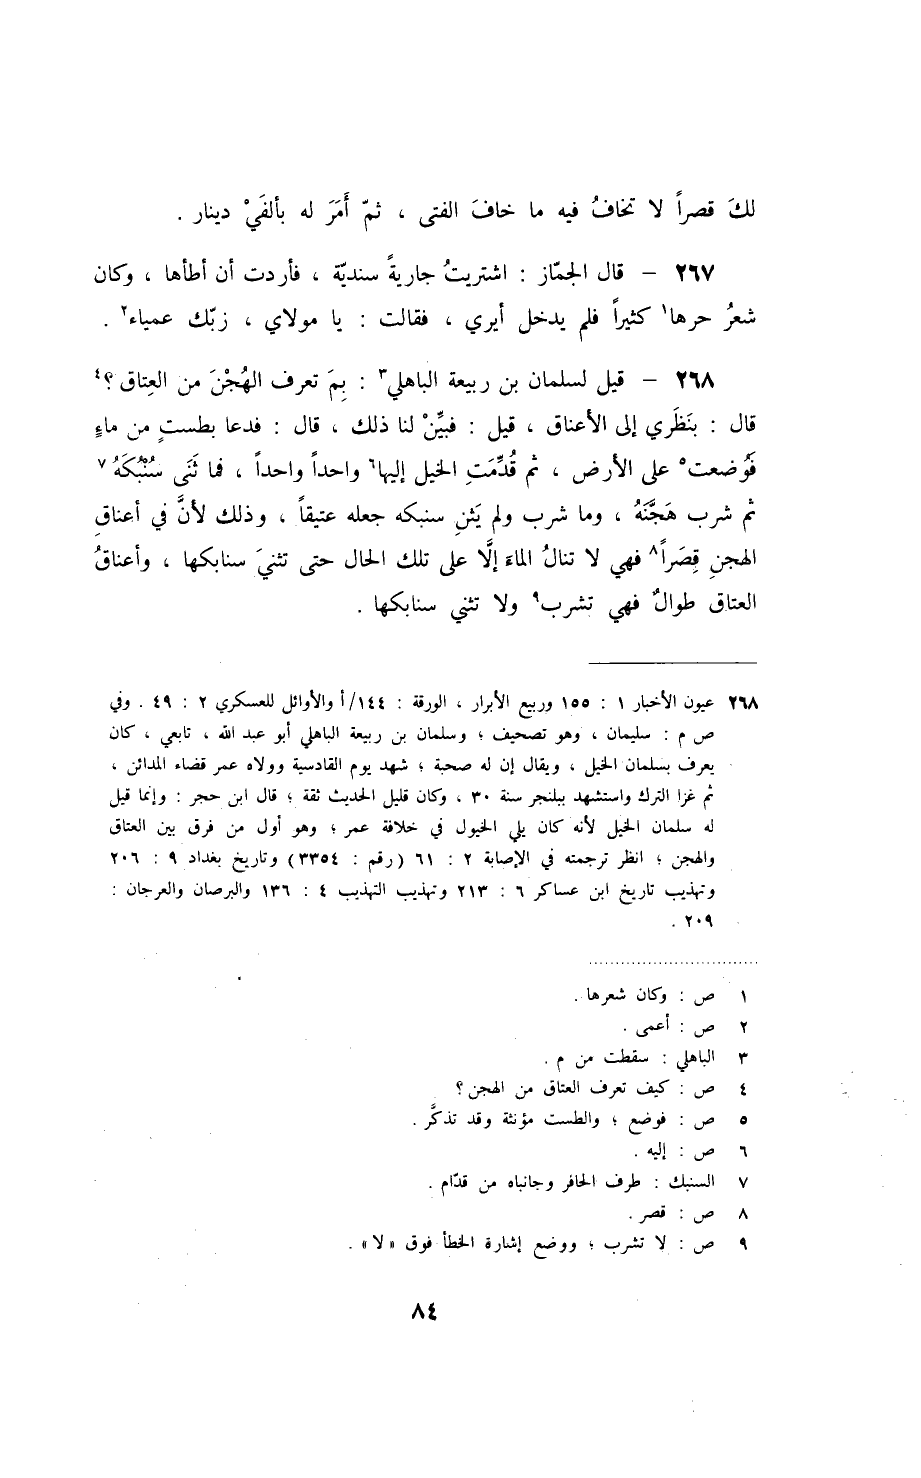 لكَ قصراً لا تخافُ فيه ما خافَ الفتى ، ثمّ أَمَرَ له بألفَيْ دينار .
٢٦٧ – قال الجمّاز : اشتريتُ جاريةً سنديّة ، فأردت أن أطأها ، وكان
شعرُ حرها١ كثيراً فلم يدخل أيري ، فقالت : يا مولاي ، زبّك عمياء٢ .
٢٦٨ – قيل لسلمان بن ربيعة الباهلي٣ : بِمَ تعرف الهُجْنَ من العِتاق ؟٤
قال : بنَظَري إلى الأعناق ، قيل : فبيِّنْ لنا ذلك ، قال : فدعا بطستٍ من ماءٍ
فَوُضعت٥ على الأرض ، ثم قُدِّمَتِ الخيل إليها٦ واحداً واحداً ، فما ثَنَى سُنْبُكَهُ٧
ثم شرب هَجَّنَهُ ، وما شرب ولم يَثنِ سنبكه جعله عتيقاً ، وذلك لأنَّ في أعناقِ
الهجنِ قِصَراً٨ فهي لا تنالُ الماءَ إلَّا على تلك الحال حتى تثنيَ سنابكها ، وأعناقُ
العتاق طوالٌ فهي تشرب٩ ولا تثني سنابكها .
٢٦٨ عيون الأخبار ١ : ١٥٥ وربيع الأبرار ، الورقة : ١٤٤/أ والأوائل للعسكري ٢ : ٤٩ . وفي
ص م : سليمان ، وهو تصحيف ؛ وسلمان بن ربيعة الباهلي أبو عبد الله ، تابعي ، كان
يعرف بسلمان الخيل ، ويقال إن له صحبة ؛ شهد يوم القادسية وولاه عمر قضاء المدائن ،
ثم غزا الترك واستشهد ببلنجر سنة ٣٠ ، وكان قليل الحديث ثقة ؛ قال ابن حجر : وإنما قيل
له سلمان الخيل لأنه كان يلي الخيول في خلافة عمر ؛ وهو أول من فرق بين العتاق
والهجن ؛ انظر ترجمته في الإصابة ٢ : ٦١ (رقم : ٣٣٥٤) وتاريخ بغداد ٩ : ٢٠٦
وتهذيب تاريخ ابن عساكر ٦ : ٢١٣ وتهذيب التهذيب ٤ : ١٣٦ والبرصان والعرجان :
٢٠٩ .
١ ص : وكان شعرها .
٢ ص : أعمى .
٣ الباهلي : سقطت من م .
٤ ص : كيف تعرف العتاق من الهجن ؟
٥ ص : فوضع ؛ والطست مؤنثة وقد تذكَّر .
٦ ص : إليه .
٧ السنبك : طرف الحافر وجانباه من قدّام .
٨ ص : قصر .
٩ ص : لا تشرب ؛ ووضع إشارة الخطأ فوق «لا» .
٨٤